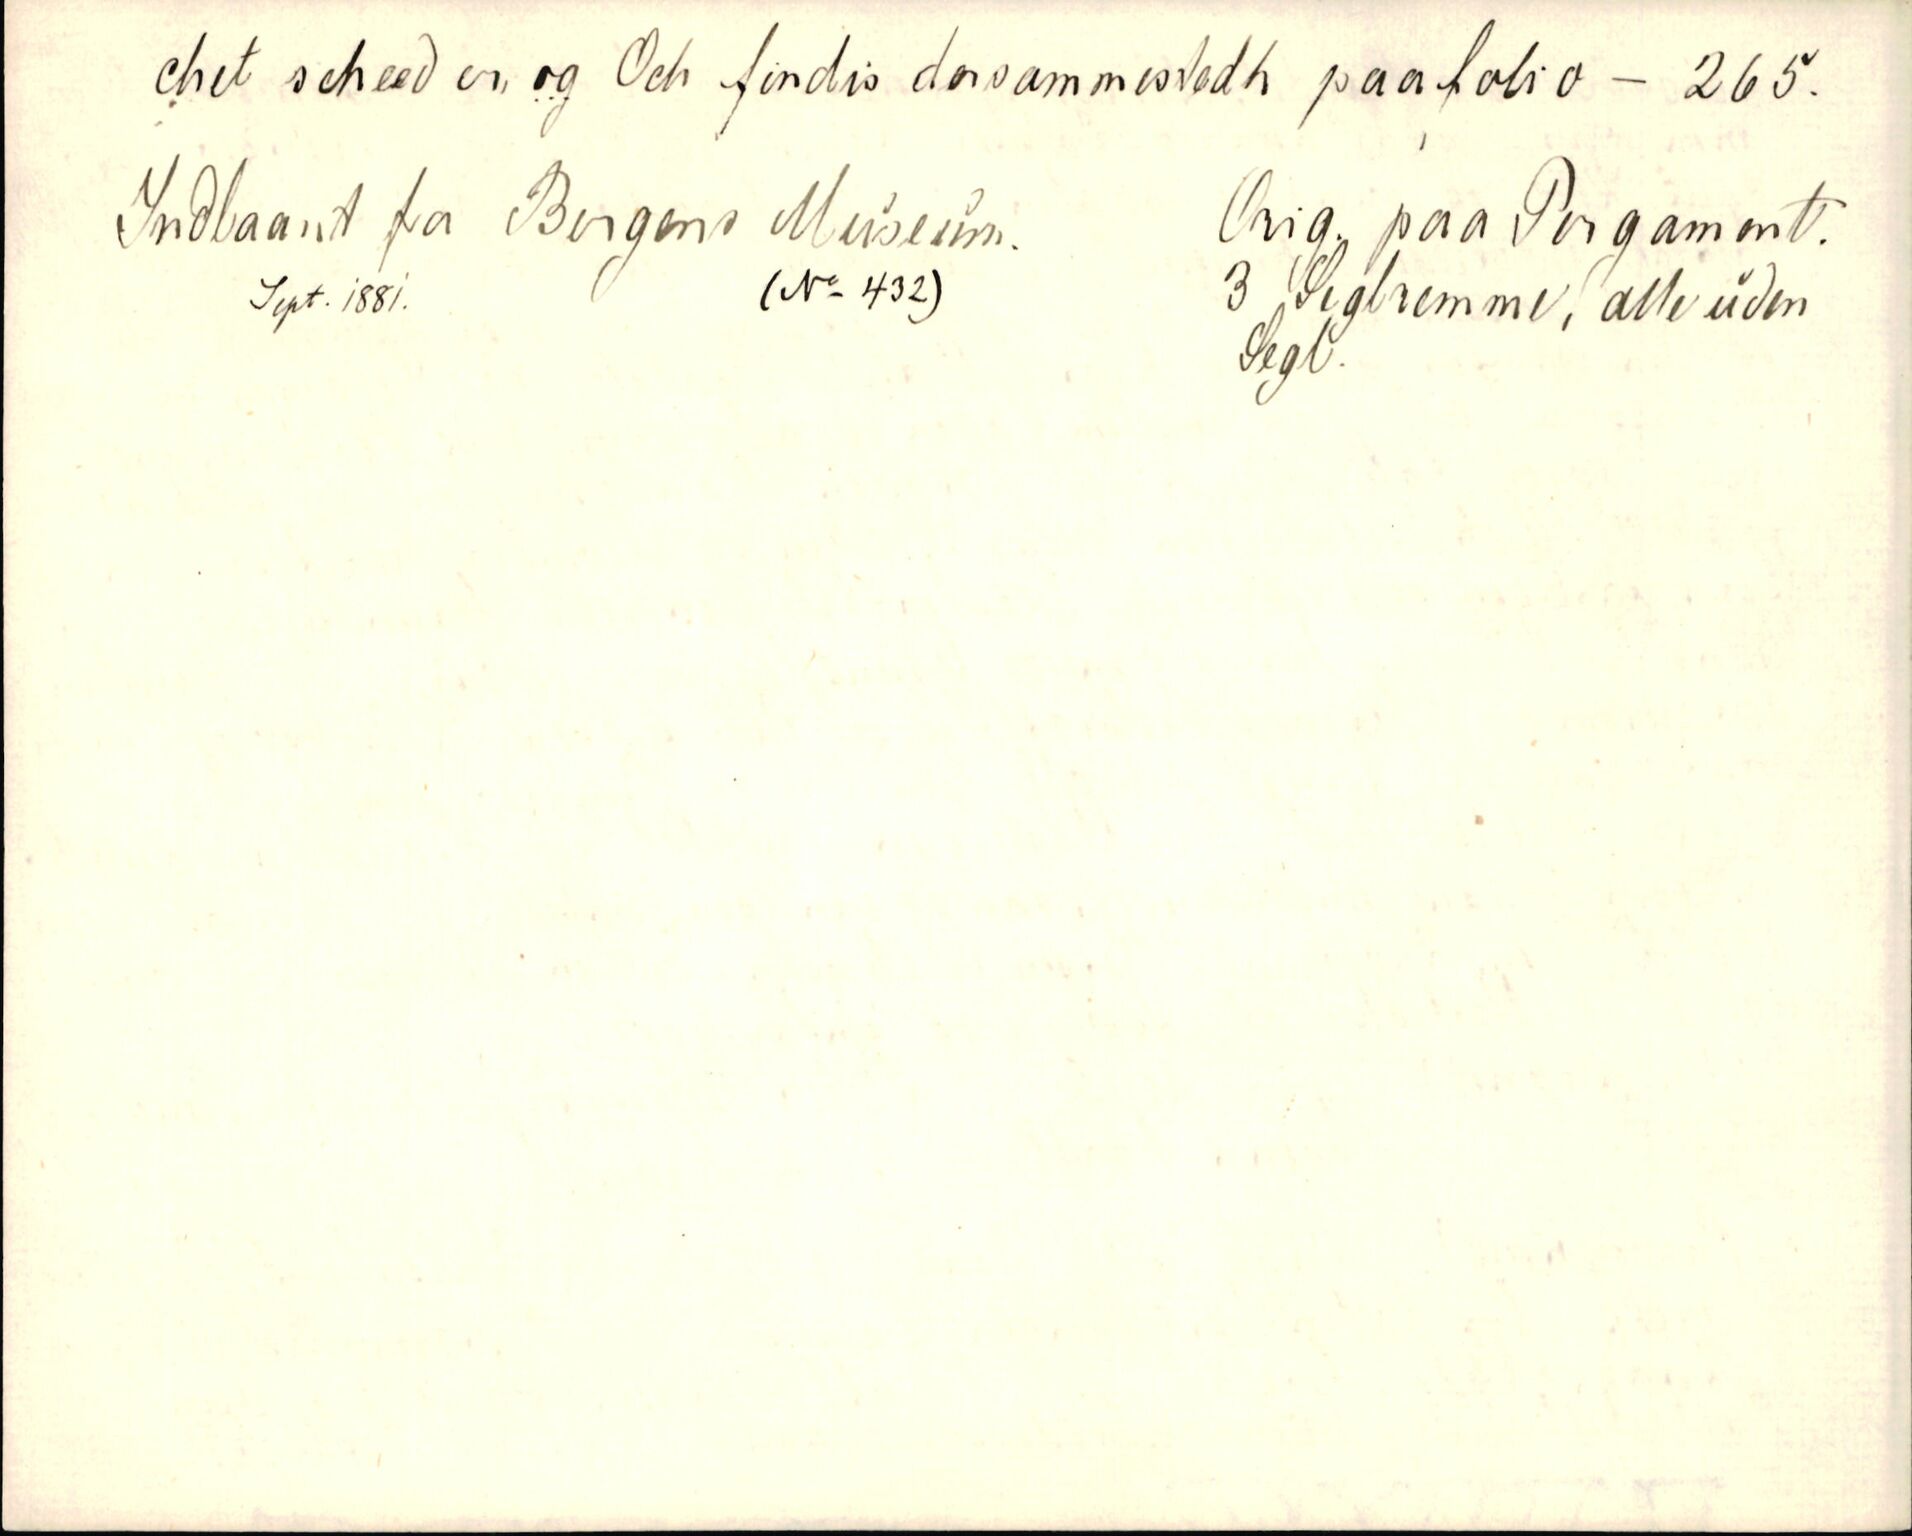 chet scheed er, og Och findis dersammestedh paa folio – 265.
Indlaant fra Bergens Museum.
Sept. 1881.
(No 432)
Orig. paa Pergament.
3 Seglremme, alle uden
Segl.